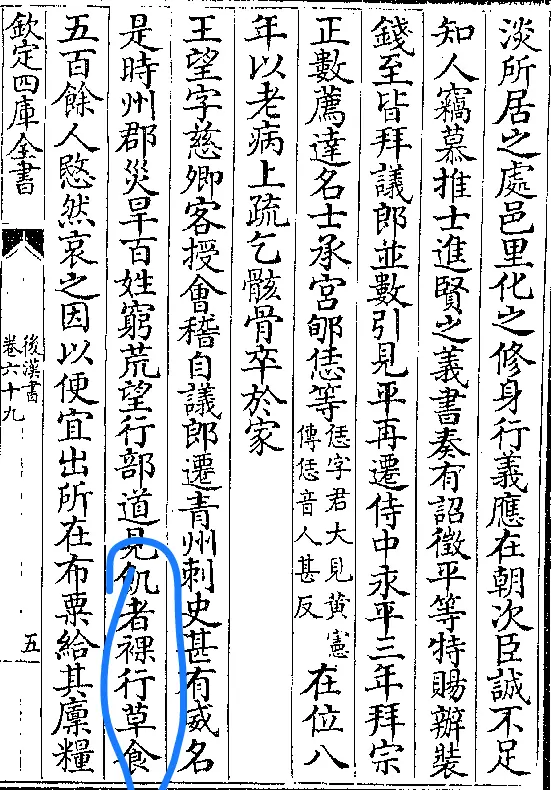 淡所居之處邑里化之修身行義應在朝次臣誠不足
知人竊慕推士進賢之義書奏有詔徵平等特賜辦裝
錢至皆拜議郎並數引見平再遷侍中永平三年拜宗
正數薦達名士承宮郇恁等恁字君大見黃憲傳恁音人甚反在位八
年以老病上疏乞骸骨卒於家
王望字慈卿客授會稽自議郎遷青州刺史甚有威名
是時州郡災旱百姓窮荒望行部道見飢者裸行草食
五百餘人愍然哀之因以便宜出所在布粟給其廩糧
欽定四庫全書
後漢書
卷六十九
五